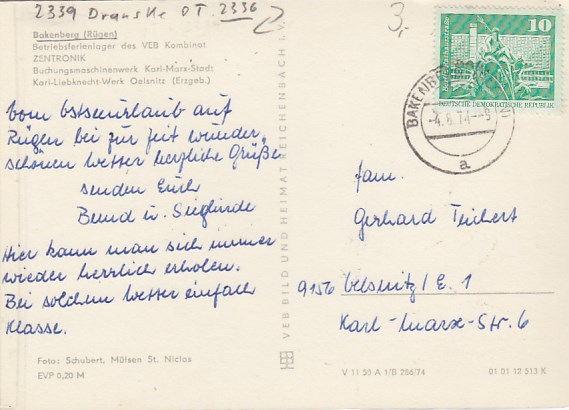 2339 Dranske OT. 2336
3,-
Bakenberg (Rügen)
Betriebsferienlager des VEB Kombinat
ZENTRONIK
Buchungsmaschinenwerk Karl-Marx-Stadt
Karl-Liebknecht-Werk Oelsnitz (Erzgeb.)
10
DEUTSCHE DEMOKRATISCHE REPUBLIK
BAKENBERG
-4.6.74--9
a
Vom Ostseeurlaub auf
Rügen bei zur Zeit wunder
schönen Wetter herzliche Grüße
senden Euch
Bernd u. Sieglinde
Hier kann man sich immer
wieder herrlich erholen.
Bei solchem Wetter einfach
Klasse.
Fam.
Gerhard Teichert
9156 Oelsnitz / E. 1
Karl-Marx-Str. 6
VEB BILD UND HEIMAT REICHENBACH i. V.
Foto: Schubert, Mülsen St. Niclas
EVP 0,20 M
V 11 50 A 1/B 256/74
01 01 12 513 K